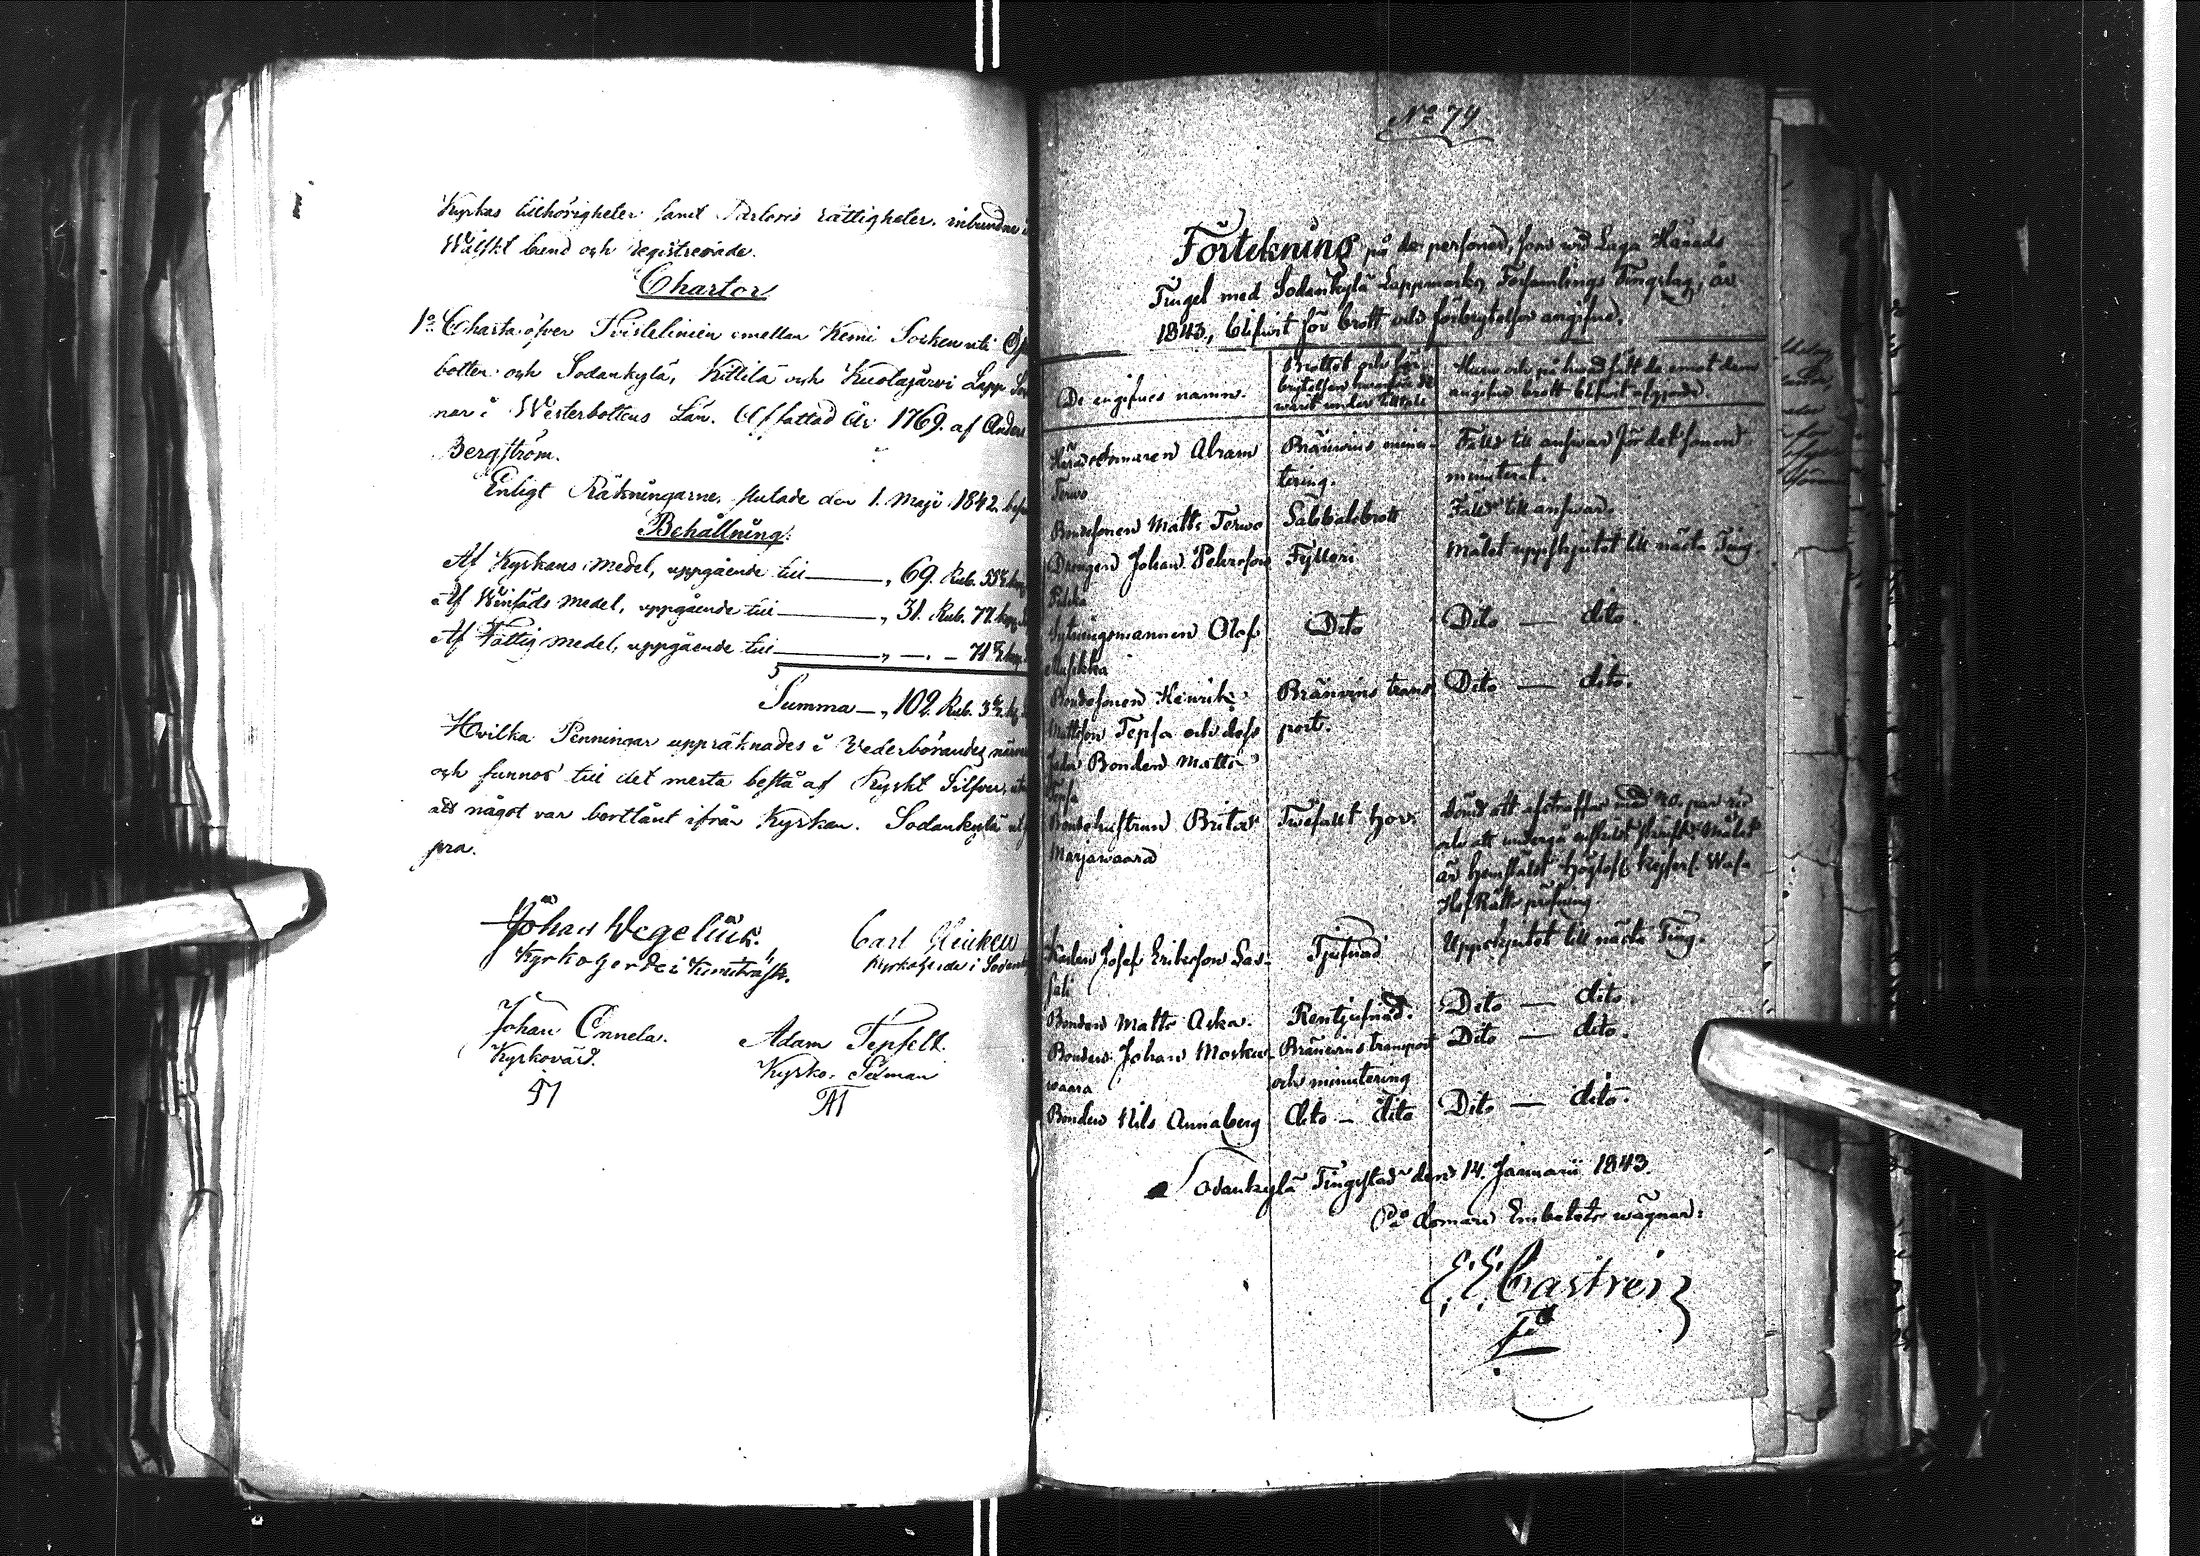 Kyrkas tillhörigheter samt Pastoris rättigheter, inbundne i
Wälskt band och registrerade.
Chartor
1o Charta öfver Skislelinien emellan Kemi Socken uti Öst
botten och Sodankylä, Kittilä och Kuolajärvi Lapp Sock
nar i Westerbottens Län. Affattad År 1769. af Anders
Bergström.
Enligt Räkningarne, slutade den 1. Maji 1842
Behållning:
Af Kyrkans medel, uppgående till — „ 69. Rub. 55½ kop
Af Winsäds medel, uppgående till — „ 31. Rub. 77. kop
Af Fattig medel, uppgående till — „ — . — 71½ kop.
Summa — „ 102. Rub. 3½
Hvilka Penningar uppräknades i Vederbörandes närva
och funnos till det mesta bestå af Ryskt Silfver, utan
att något var bortlånt ifrån Kyrkan. Sodankylä ut
pra.
Johan Wegelius.
Kyrkoherde i Kemiträsk.
Carl Heickell
Kyrkoherde i Sodank
Johan Onnela.
Kyrkovärd.
Adam Tepsell.
Kyrko-
No 74
Förtekning på de personer, som wid Laga Härads
Tinget med Sodankylä Lappmarks Församlings Tingslag, år
1843, blifwit för brott och förbrytelser angifne.
De angifnes namn.
Brottet och för-
brytelsen hwarföre de
warit under tilltale
Huru och på hwad sätt de emot dem
angifne brott blifwit afgjorde.
Häradsdomaren Abram
Terwo
Bränwins minu-
tering.
Fälld till answar för det samma
minuterat.
Bondesonen Matts Terwo
Sabbatsbrott
Fälld till answar.
Drengen Johan Pehrsson
Fylleri
Målet uppskjutet till nästa Ting.
Sytningsmannen Olof
Kusikka
Dito
Dito — dito.
Bondesonen Henrik
Mattsson Tepsa och dess
fader Bonden Matts
Tepsa
Bränwins trans
port.
Dito — dito.
Bondehustrun Brita
Marjawaara
Twefallt hor.
Dömd att afstraffas med 20. par ris
och att undergå enskild skrift. Målet
är hemstäldt Höglofl. Kejserl. Wasa
HofRätts pröfning.
Karlen Josef Eriksson Sas-
sali
Tjufnad
Uppskjutet till nästa Ting.
Bonden Matts Aska.
Rentjufnad.
Dito — dito.
Bonden Johan Mosku-
waara
Bränwins transport
och minutering
Dito — dito.
Bonden Nils Annaberg
dito — dito
Dito — dito.
Sodankylä Tingsstad den 14. Januarii 1843.
På domare Embetets wägnar:
E. E. Castrén